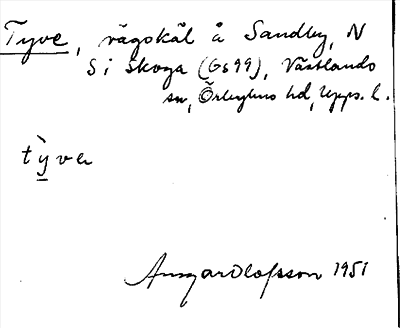 Tyve, vägskäl å Sandby, N
S i Skoga (Gs99), Västlands
sn, Örbyhus hd, Upps. l.
tỳve
Ansgar Olofsson 1951